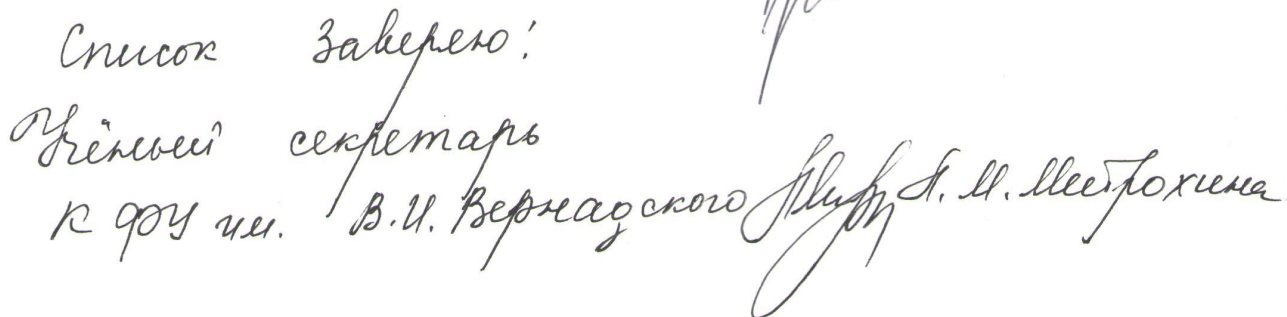 Список заверяю!
Учёный секретарь
КФУ им. В.И. Вернадского Л.М. Митрохина